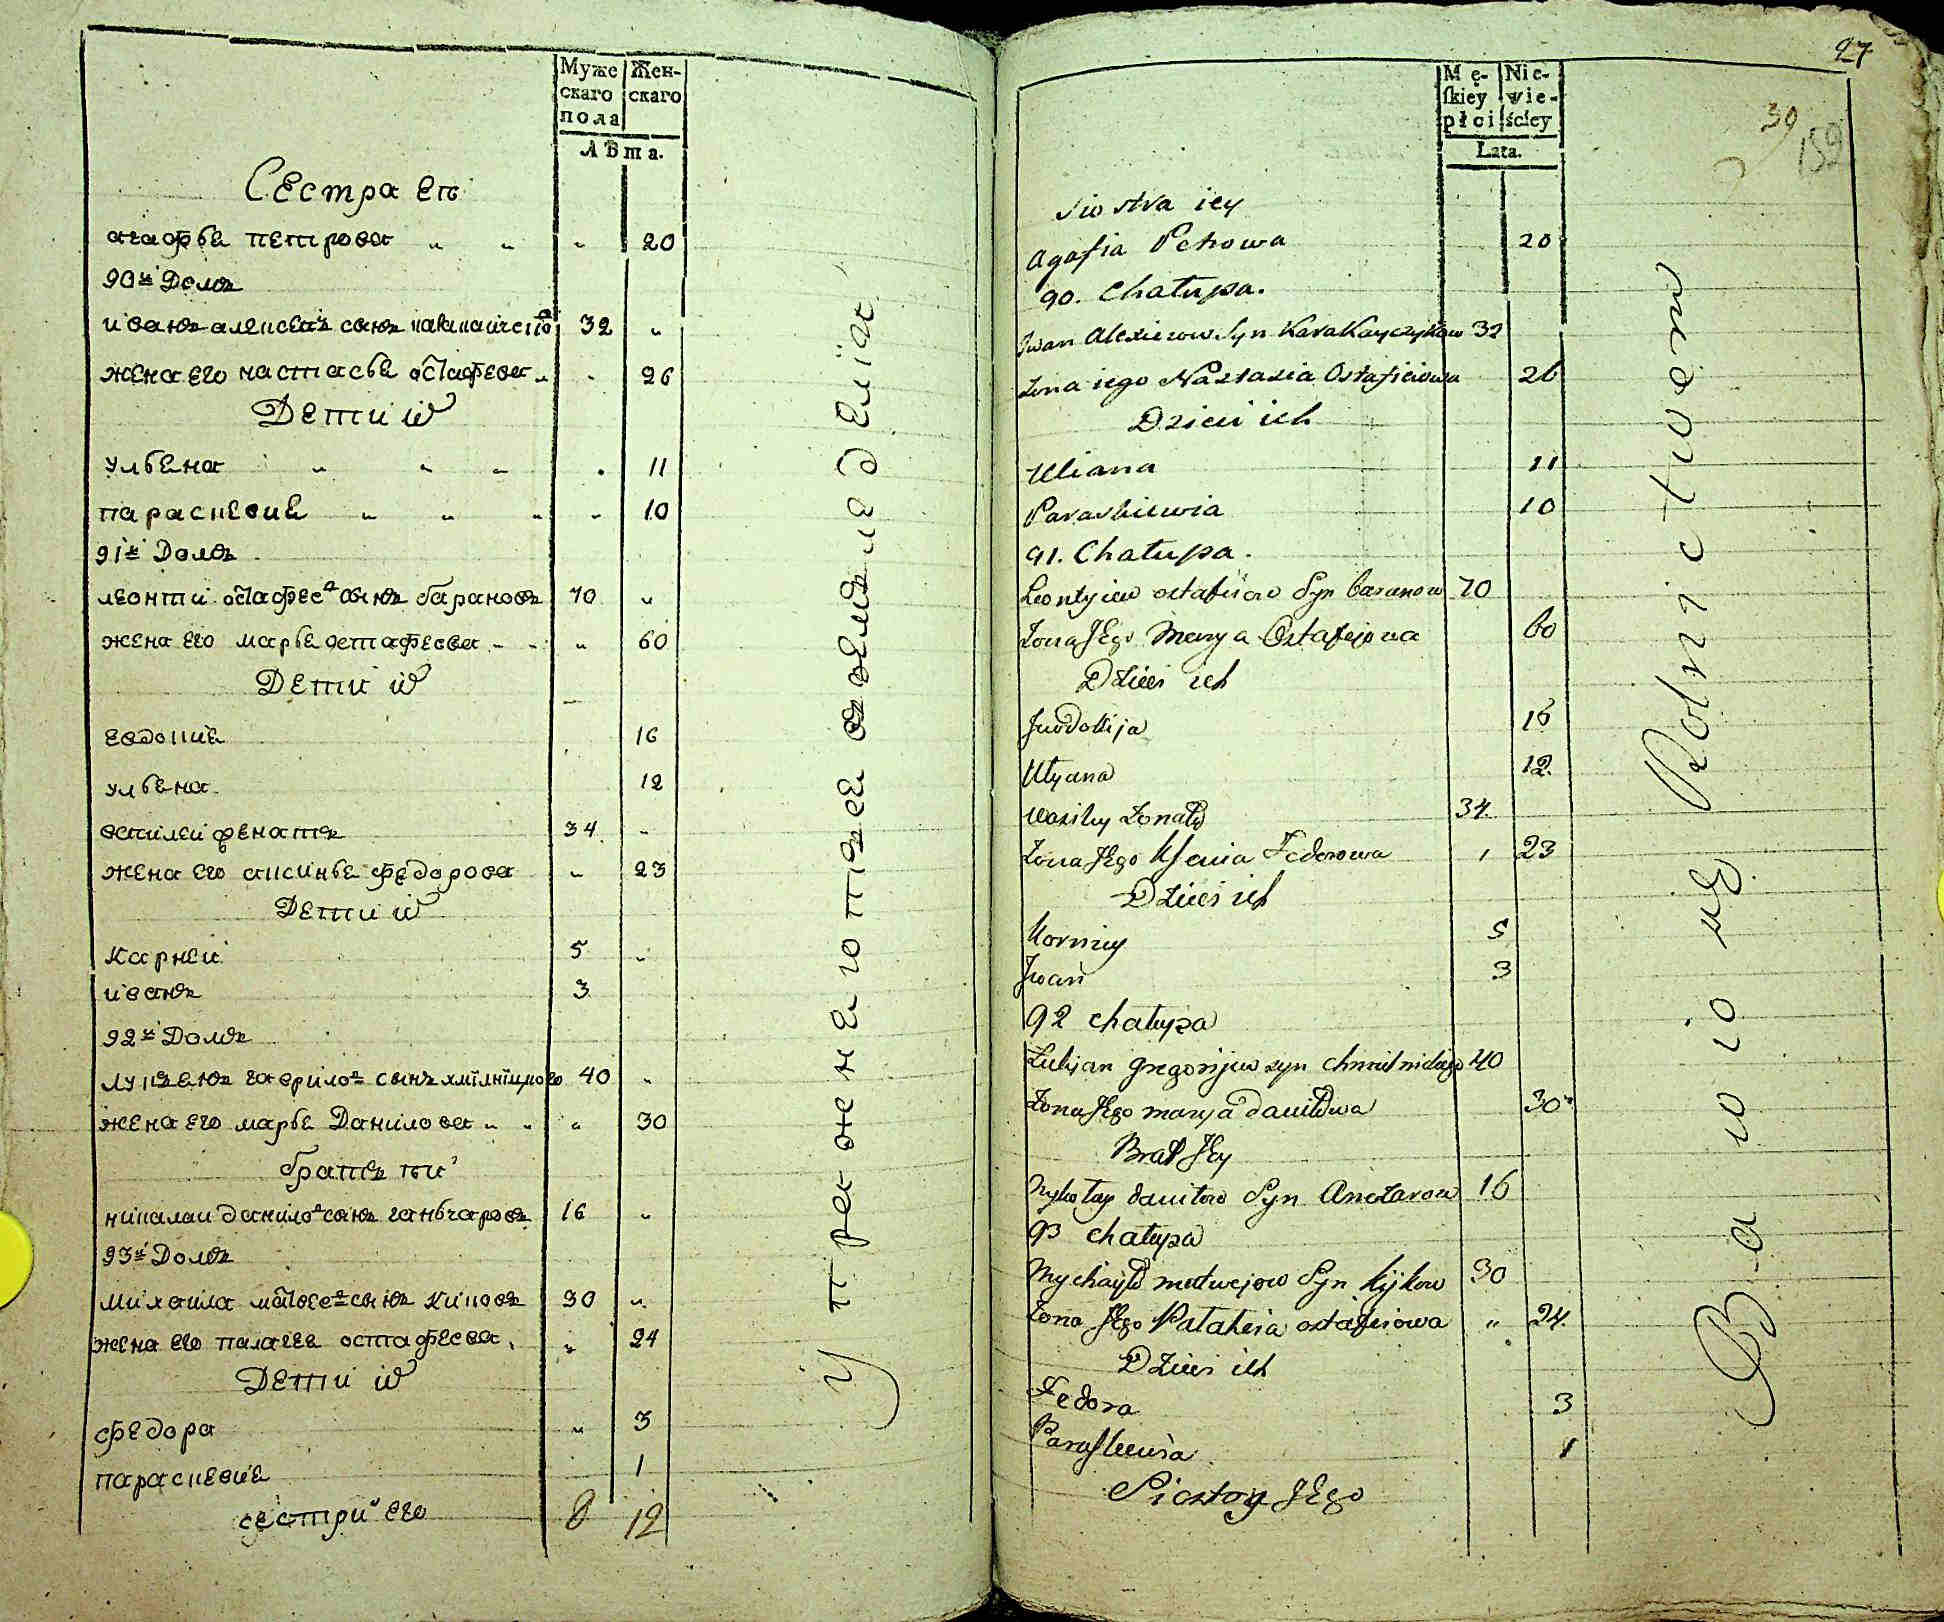 Муже
скаго
пола
Жен-
скаго
Лѣта.
Сестра еи
агафьѧ петрова " " " 20
90й Домъ
иванъ алеѯеевъ сынъ 32 "
жена его настасьѧ остафева " " 26
Дети их
ульѧна " " " " 11
параскевиѧ " " " " 10
91й Домъ
леонти остафеевъ сынъ барановъ 70 "
жена его марьѧ остафеева " " " 60
Дети их
евдокиѧ 16
ульѧна 12
василеи 34 "
жена его аксиньѧ федорова " 23
Дети их
Карнеи 5 "
иванъ 3
92й Домъ
лукѧнъ гаврилов сынъ 40 "
жена его марьѧ Данилова " " " 30
братъ еи
николаи данилов сынъ ганьчаровъ 16 "
93й Домъ
михаила матвеев сынъ киковъ 30 "
жена его палагеѧ остафеева " 24
Дети их
федора " 3
параскевиѧ 1
сестри его 8 12
Упражнѧютъсѧ
27
39
159
Mę-
skiey
płci
Nie-
wie-
ściey
Lata.
Siostra iey
Agafia Petrowa 20
90. Chatupa.
Iwan Alexieiow Syn Karakayczykow 32
Zona iego Nastasia Ostafieiowa 26
Dzieci ich
Uliana 11
Paraskiewia 10
91. Chatupa.
Leontyiew ostafiiow Syn baranow 70
Zona Jego Marya Ostafejowa 60
Dzieci ich
Juwdokija 16
Ulyana 12.
Wasiley Zonaty 34.
Zona Jego Ksenia Federowa 23
Dzieci ich
Korniey 5
Jwan 3
92 chatupa
Lukjan gregorijew syn 40
Zona Jego marya daniłowa 30
Brat Jey
Mykołay daniłow Syn Anczarow 16
93 chatupa
Mychayło matwejow Syn Kijkow 30
Zona Jego Pataheia ostafiiowa " 24.
Dzieci ich
Fedora 3
Paraskewia 1
Siostry Jego
Bawio się Rolnictwem